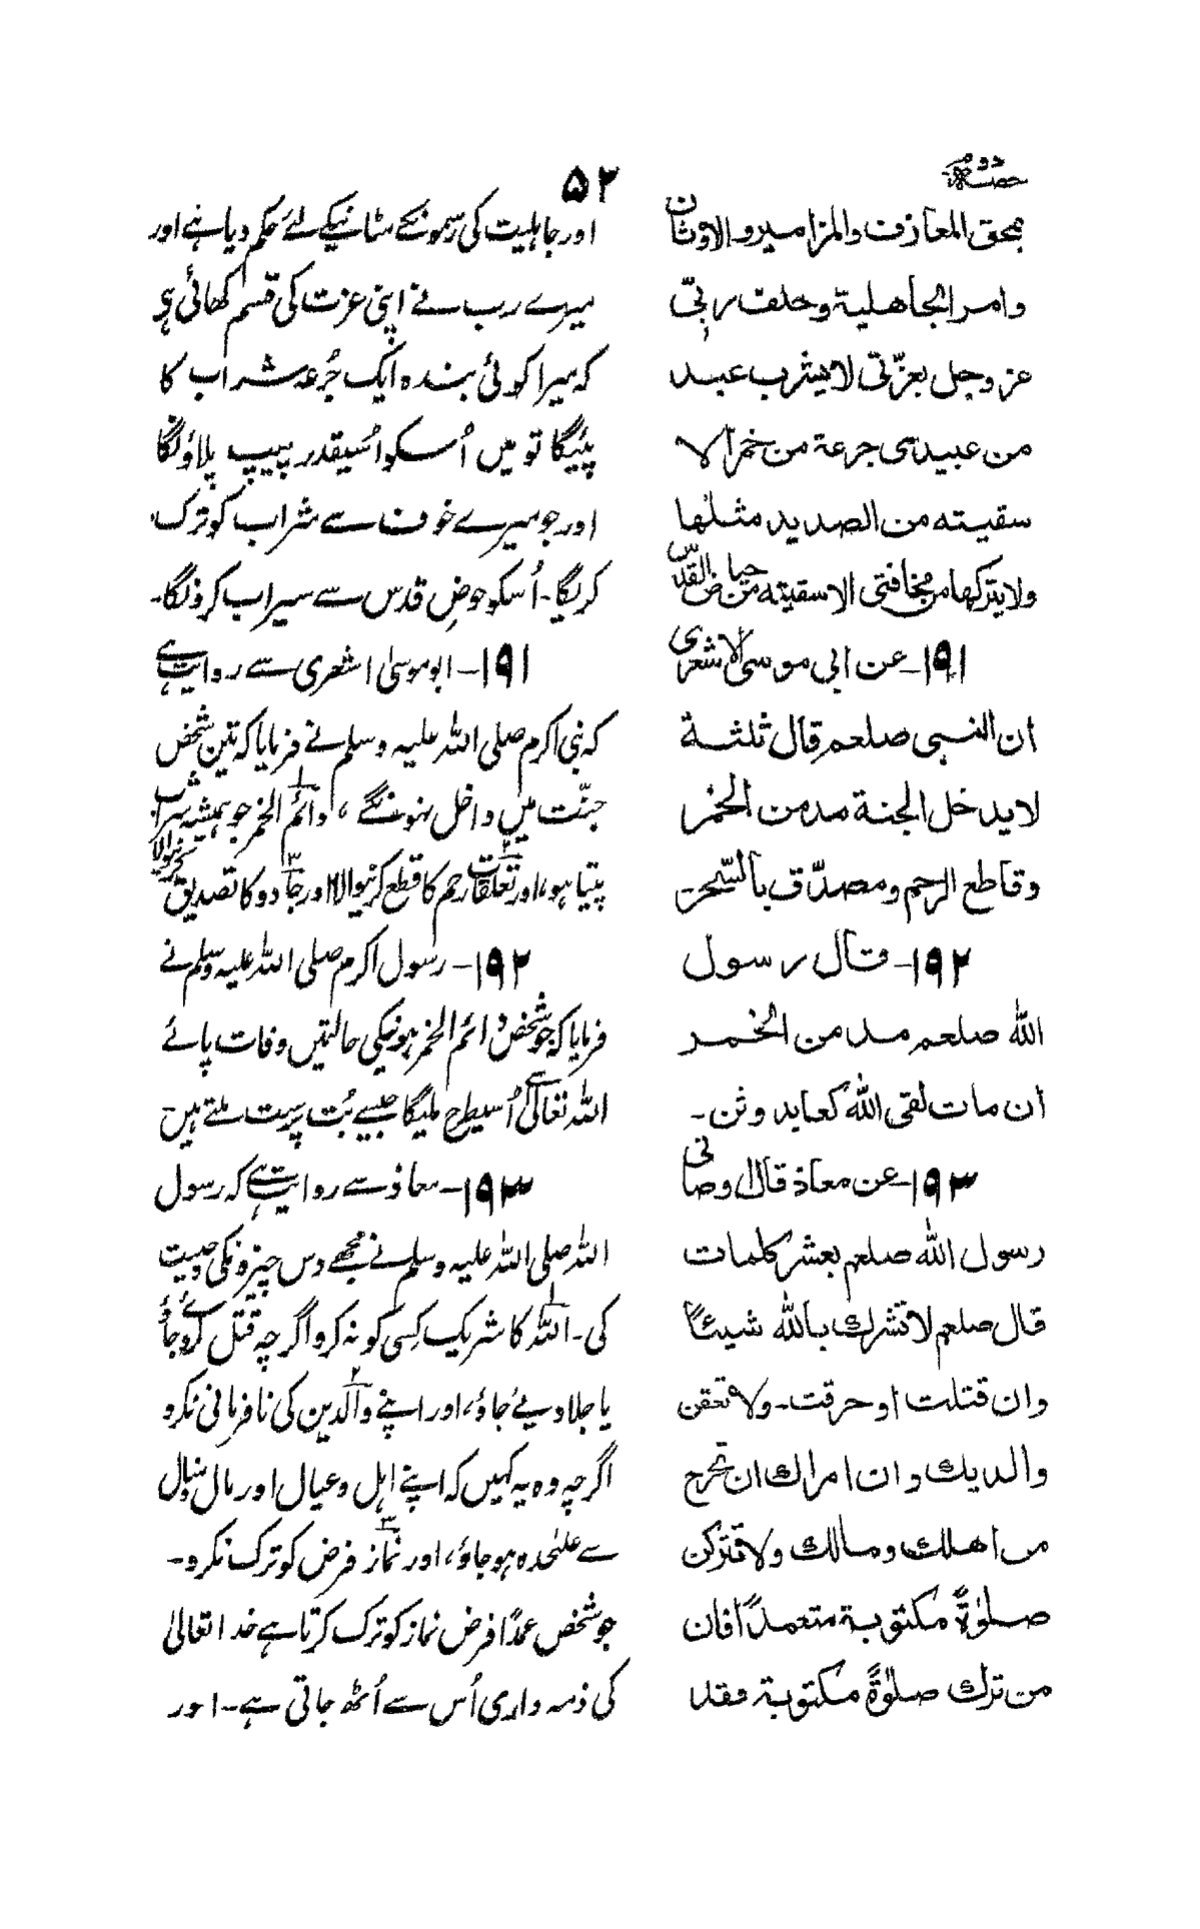 حصہ دوم
۵۲
بمحق المعازف والمزامیر والاوثان
وامر الجاهلیة وحلف ربّی
عز وجل بعزّتی لا یشرب عبد
من عبیدی جرعة من خمر الا
سقیته من الصدید مثلها
ولا یترکها من مخافتی الا سقیته من حیاض القدس
۱۹۱ـ عن ابی موسی الاشعری
ان النبی صلعم قال ثلثة
لا یدخل الجنة مدمن الخمر
وقاطع الرحم ومصدّق بالسّحر۔
۱۹۲ـ قال رسول
الله صلعم مدمن الخمر
ان مات لقی الله کعابد وثن۔
۱۹۳ـ عن معاذ قال اوصانی
رسول الله صلعم بعشر کلمات
قال صلعم لا تشرك بالله شیئاً
وان قتلت او حرقت۔ ولا تعقن
والدیك وان امراك ان تخرج
من اهلك ومالك ولا تترکن
صلوٰةً مکتوبة متعمداً فان
من ترك صلوٰةً مکتوبة فقد
اور جاہلیت کی رسمونکے مٹانیکے لئے حکم دیا ہے اور
میرے رب نے اپنی عزت کی قسم کھائی ہی
کہ میرا کوئی بندہ ایک جُرعہ شراب کا
پئیگا تو میں اُسکو اُسیقدر پیپ پلاؤنگا
اور جو میرے خوف سے شراب کو ترک
کریگا۔ اُسکو حوضِ قدس سے سیراب کرونگا۔
۱۹۱ـ ابو موسیٰ اشعری سے روایت ہے
کہ نبی اکرم صلی اللہ علیہ وسلم نے فرمایا کہ تین شخص
جنّت میں داخل نہونگے، ۱ دائم الخمر جو ہمیشہ شراب
پیتا ہو، اور ۲ تعلقات رحم کا قطع کرنیوالا اور ۳ جادو کا تصدیق کرنیوالا
۱۹۲ـ رسول اکرم صلی اللہ علیہ وسلم نے
فرمایا کہ جو شخص دائم الخمر ہونیکی حالتیں وفات پائے
اللہ تعالیٰ سے اُسیطرح ملیگا جیسے بُت پرست ملتے ہیں
۱۹۳ـ معاذ سے روایت ہے کہ رسول
اللہ صلی اللہ علیہ وسلم نے مجھے دس چیزونکی وصیت
کی۔ ۱ اللہ کا شریک کسی کو نہ کرو اگرچہ قتل کردئے جاؤ
یا جلا دیئے جاؤ، اور اپنے ۲ والدین کی نافرمانی نکرو
اگرچہ وہ یہ کہیں کہ اپنے اہل و عیال اور مال و منال
سے علٰحدہ ہو جاؤ، اور ۳ نماز فرض کو ترک نکرو۔
جو شخص عمدًا فرض نماز کو ترک کرتا ہے خدا تعالیٰ
کی ذمہ داری اُس سے اُٹھ جاتی ہے۔ اور